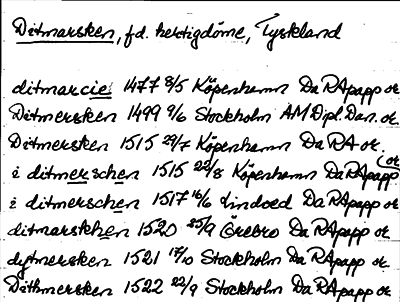 Ditmarsken, fd. hertigdöme, Tyskland
ditmarcie 1477 8/5 Köpenhamn Da RApapp or
Ditmersken 1499 9/6 Stockholm AM Dipl Dan. or
Ditmersken 1515 29/7 Köpenhamn Da RA or.
i ditmerschen 1515 22/8 Köpenhamn Da RApapp (or
i ditmerschen 1517 16/6 Lindoed Da RApapp or
ditmarskhen 1520 25/9 Örebro Da RApapp or
dytmersken 1521 17/10 Stockholm Da RApapp or
Dithmersken 1522 22/9 Stockholm Da RApapp or